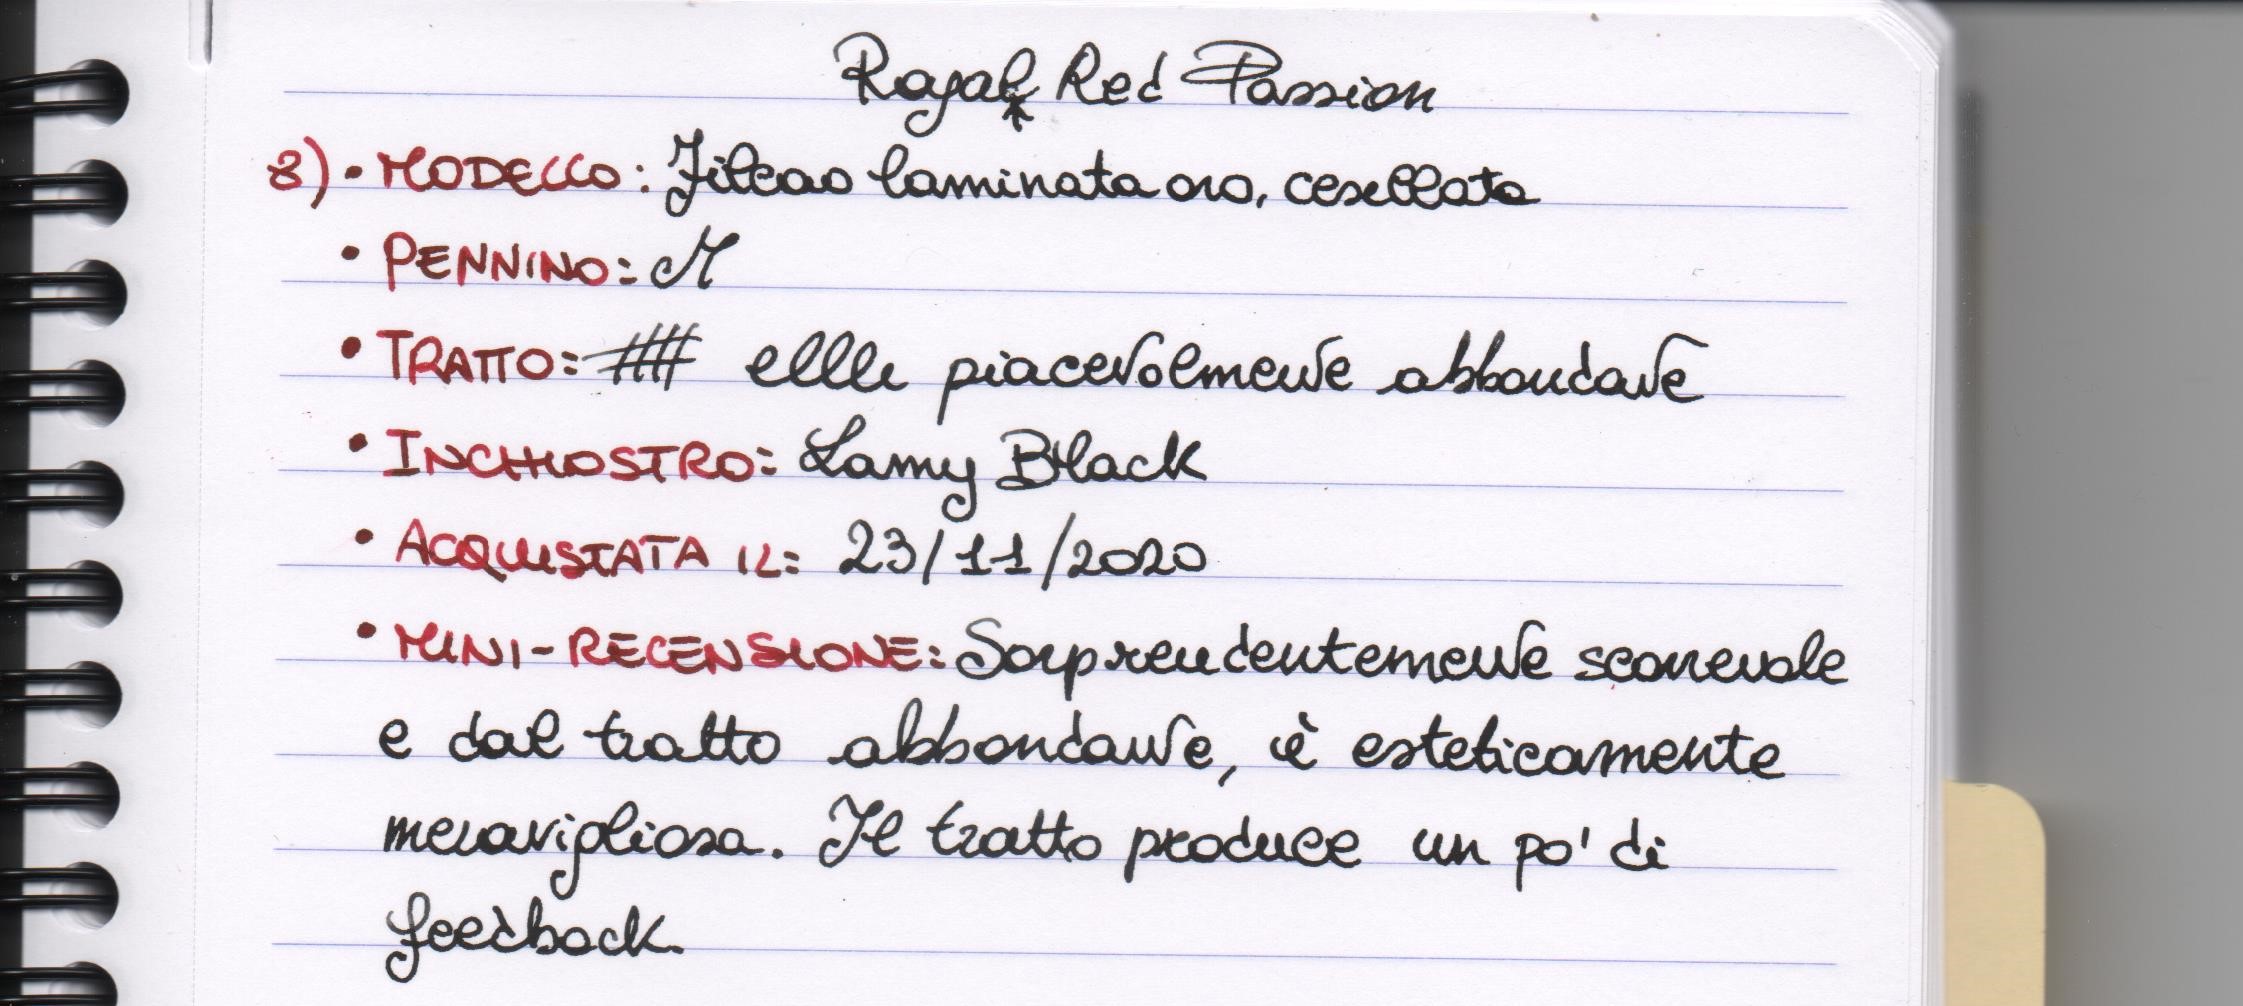 Royal* Red Passion
8) • MODELLO: Filcao laminata oro, cesellata
• PENNINO: M
• TRATTO: elle piacevolmente abbondante
• INCHIOSTRO: Lamy Black
• ACQUISTATA IL: 23/11/2020
• MINI-RECENSIONE: Sorprendentemente scorrevole
e dal tratto abbondante, è esteticamente
meravigliosa. Il tratto produce un po' di
feedback.